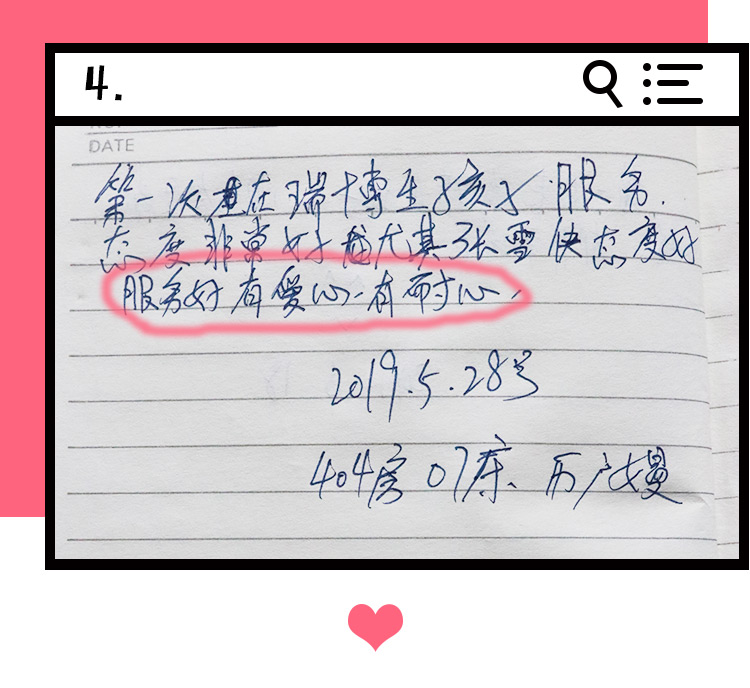 4.
DATE
第一次在瑞博生孩子服务.
态度非常好尤其张雪快态度好
服务好有爱心.有耐心,
2019.5.28号
404房07床.